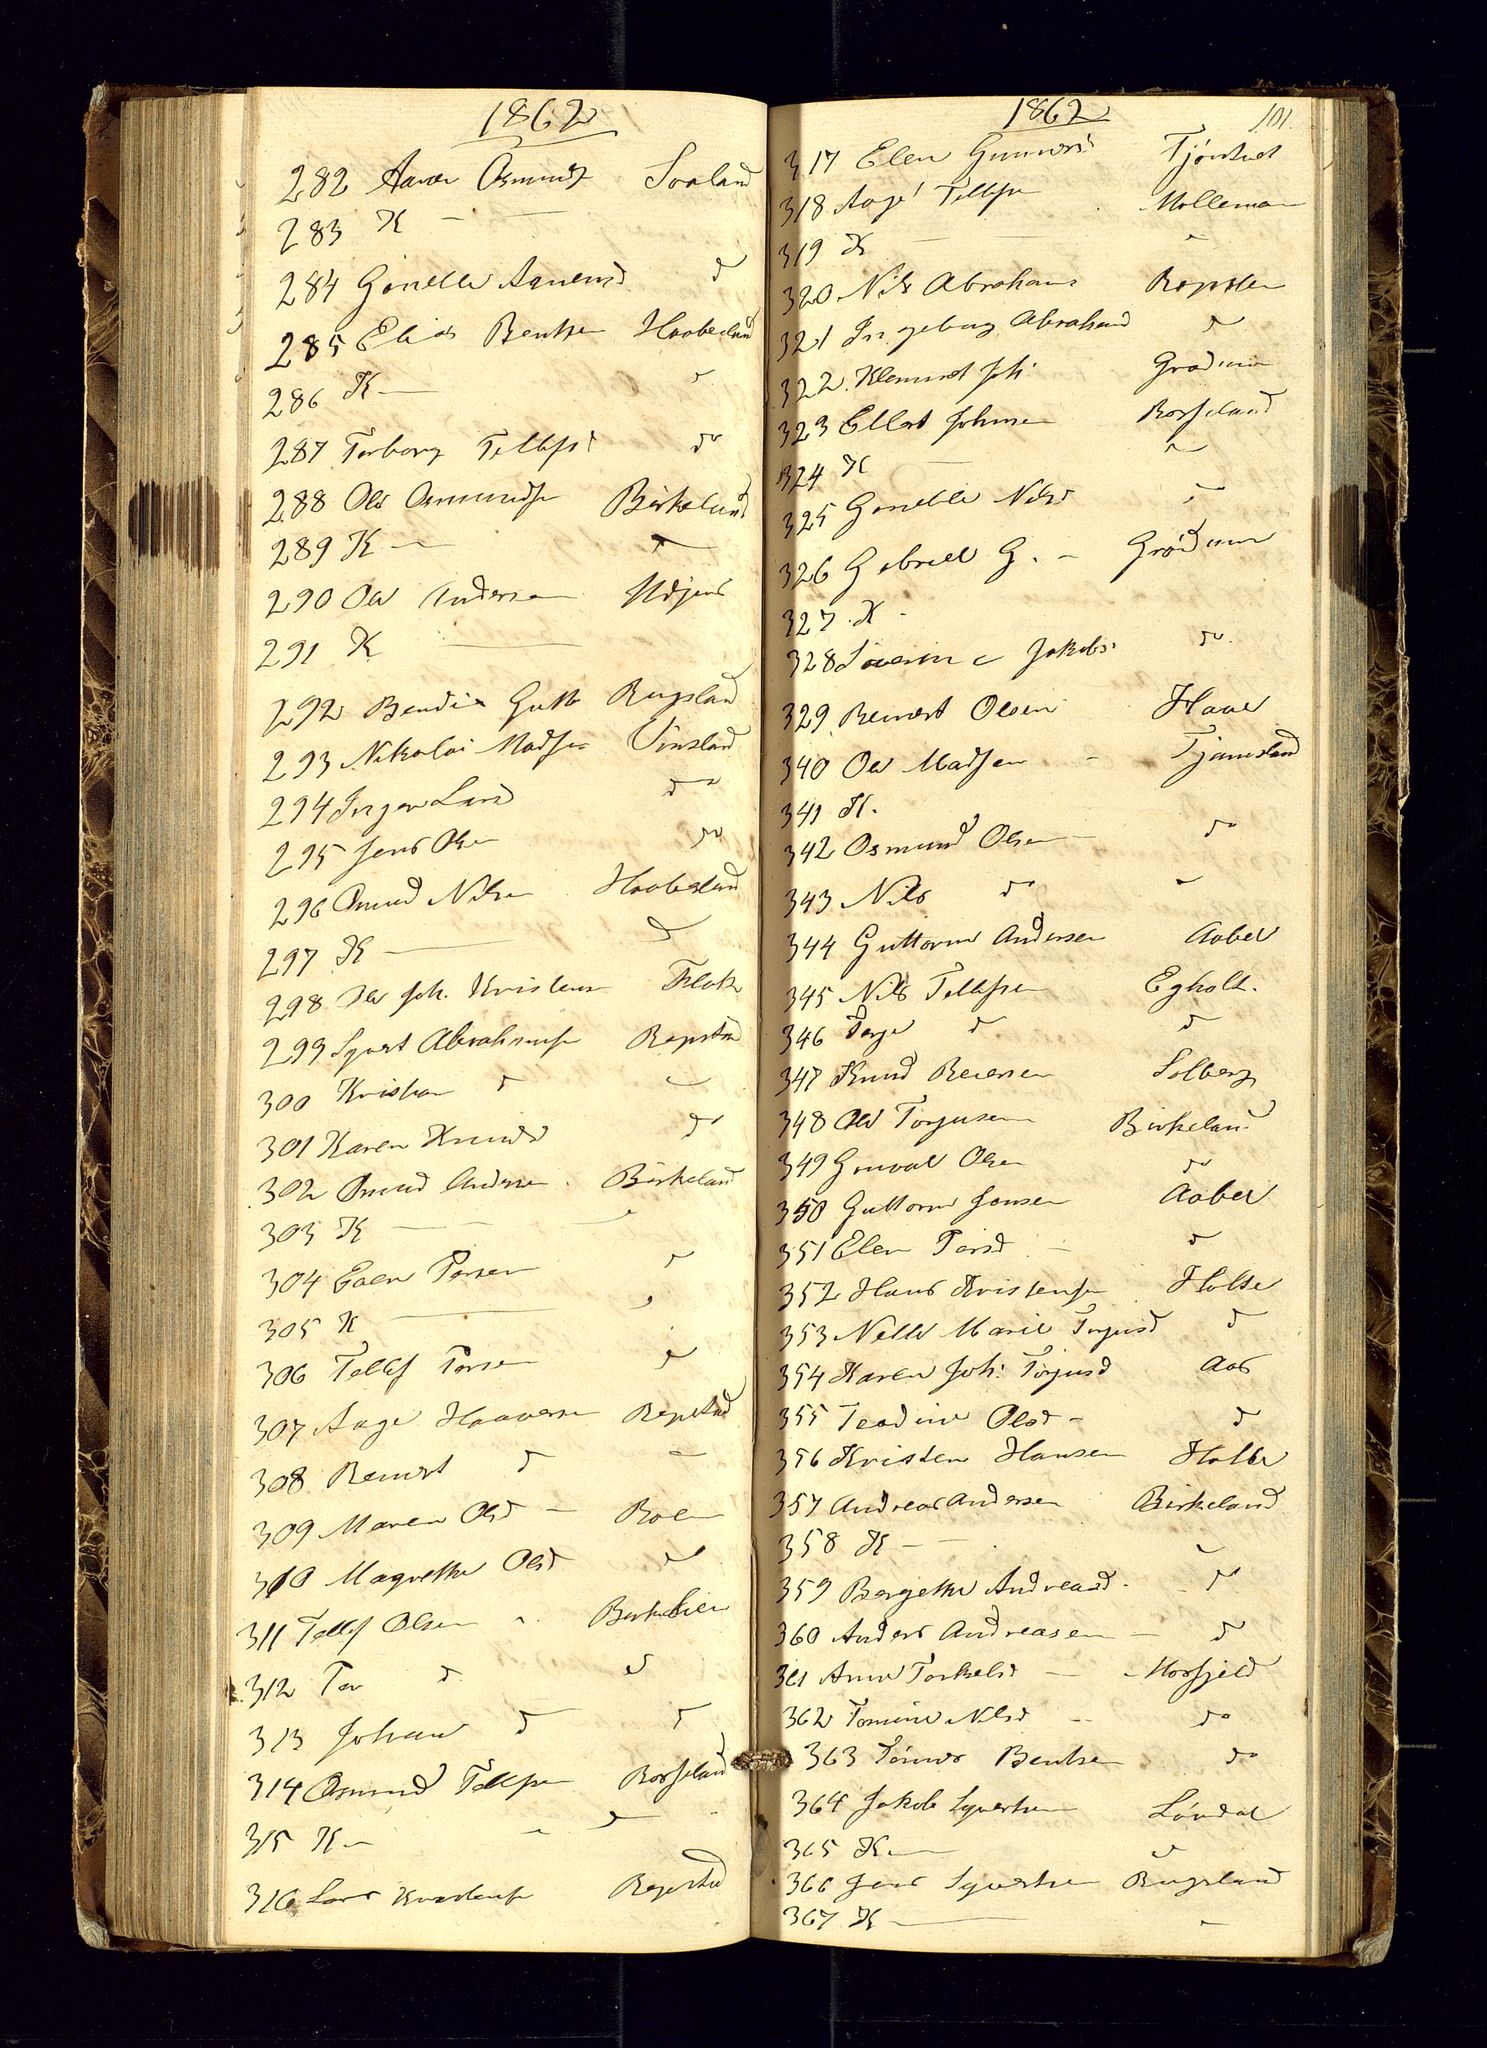 1862
282 Aanon Osmunds Soeland
283 K — —
284 Gunelle Aanensd do
285 Elias Bentsen Haabesland
286 K — "
287 Torborg Tellefsd do
288 Ole Osmundsen Birkeland
289 K — "
290 Ole Andersen
291 K —
292 Bendix Gutt Rugsland
293 Nikolai Madsen Vinsland
294 Inger Larsd do
295 Jens Olsen do
296 Omund Nilsen Haabesland
297 K — do
298 Ole Joh. Kristens Flak
299 Syvert Abrahamsen Repstad
300 Kristian do "
301 Karen Knudsd do
302 Omund Andersen Birkeland
303 K — — "
304 Even Torsen do
305 K — "
306 Tellef Torsen do
307 Aage Haaversen Repstad
308 Reinert do "
309 Maren Olsd — Roen
310 Magrethe Olsd do
311 Tellef Olsen " Birkelien
312 Tor do do
313 Johan do do
314 Osmund Tellefsen Rosseland
315 K — " do
316 Lars Kristensen Repstad
1862 101.
317 Elen Gunnersd
318 Aage Tellefsen Mollemoen
319 K — — "
320 Nils Abrahams Repsten
321 Ingeborg Abrahamsd do
322 Klemmet Joh. Grødum
323 Ellert Johnsen Rosseland
324 K — "
325 Gunelle Nilsd do
326 Gabriel G. — Grødum
327 K -
328 Severine Jakobs. do
329 Reinert Olsen Haave
340 Ole Madsen - Tjomsland
341 K.
342 Osmund Olsen — do
343 Nils do "
344 Guttorm Andersen Aabel
345 Nils Tellefsen Egholt.
346 Terje do do
347 Knud Reiersen Solberg
348 Ole Torjusen Birkeland
349 Gunval Olsen do
350 Guttorm Jonsen Aabel
351 Elen Torsd — do
352 Hans Kristensen Holte
353 Nelle Marie Torjusd do
354 Karen Joh. Torjusd Aas
355 Teodine Olsd - do
356 Kristen Hansen Holte
357 Andreas Andersen Birkeland
358 K — — "
359 Bergethe Andreasd. do
360 Anders Andreasen — do
361 Anne Torkelsd — - Hosfjeld
362 Tomine Nilsd — do
363 Tønnes Bentsen do
364 Jakob Syvertsen Løvdal
365 K — "
366 Jens Syvertsen Rugsland
367 K — "